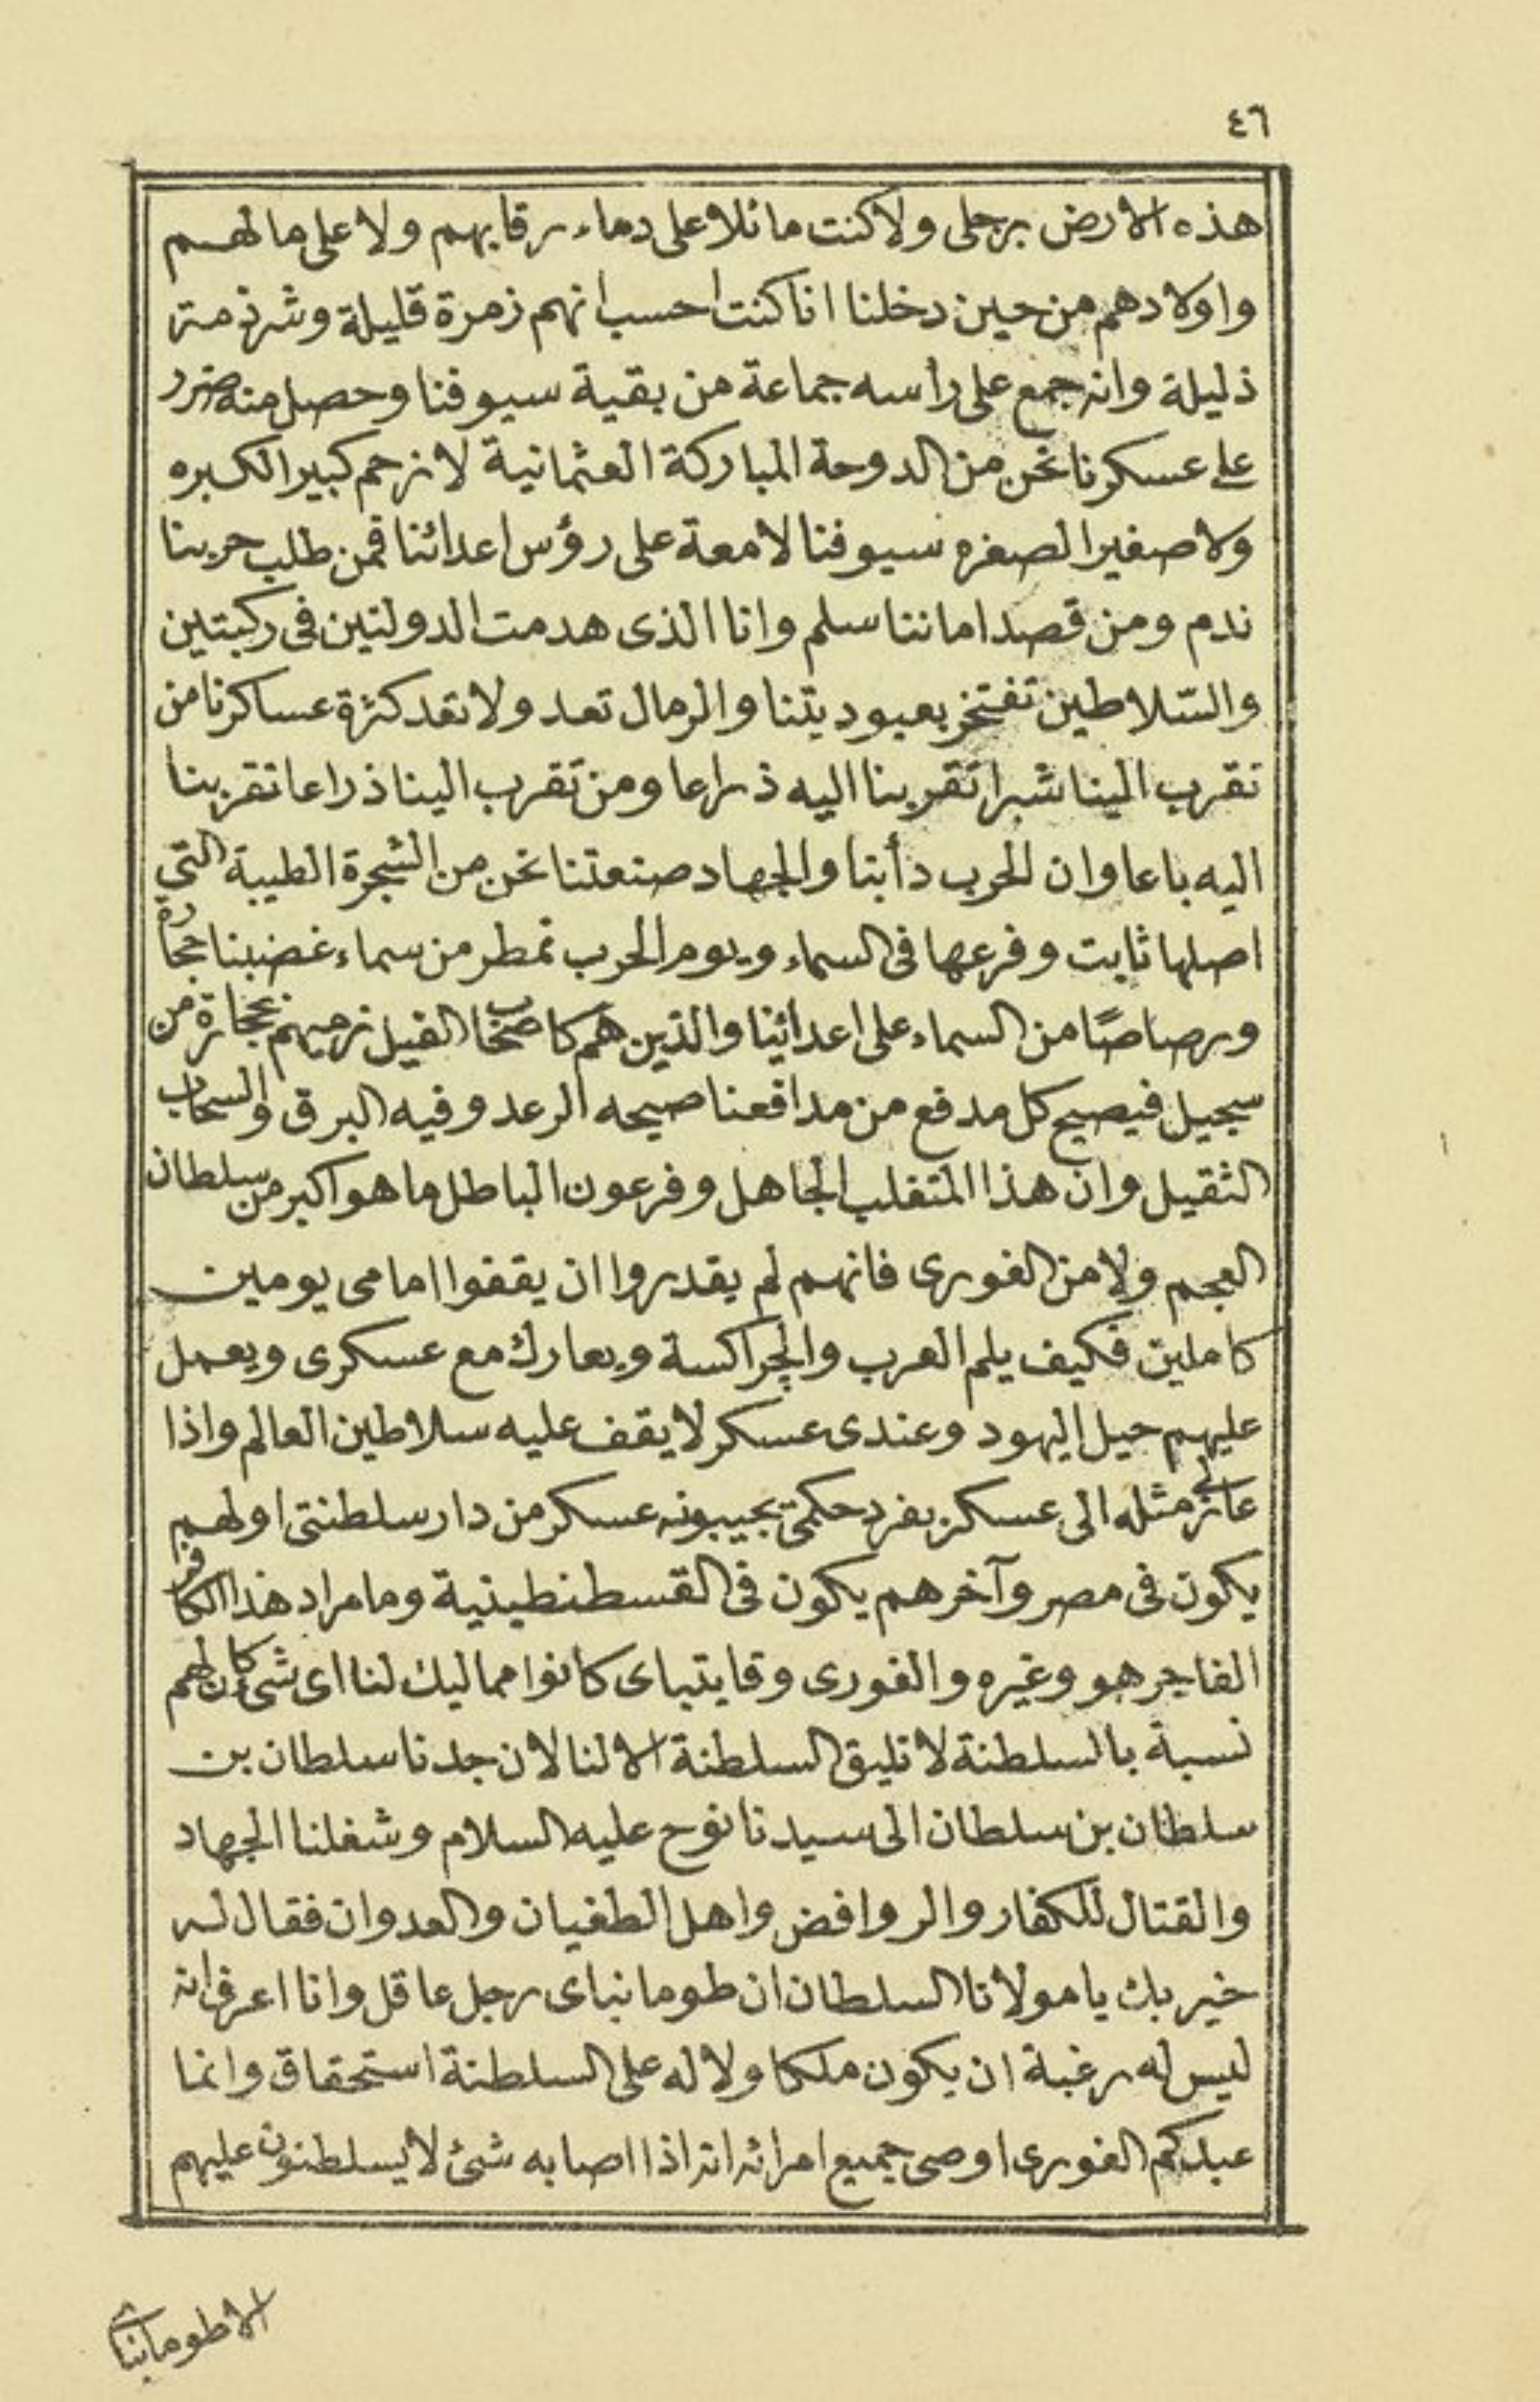 ٤٦
هذه الارض برجلى ولا كنت مائلا على دماء رقابهم ولا على ما لهم
واولادهم من حين دخلنا انا كنت احسب انهم زمرة قليلة وشرذمة
ذليلة وانه جمع على رأسه جماعة من بقية سيوفنا وحصل منه ضرر
على عسكرنا نحن من الدوحة المباركة العثمانية لا نرحم كبير الكبره
ولا صغير الصغره سيوفنا لامعة على رؤس اعدائنا فمن طلب حربنا
ندم ومن قصد اماننا سلم وانا الذى هدمت الدولتين فى ركبتين
والسّلاطين تفتخر بعبوديتنا والرمال تعد ولا تعد كثرة عساكرنا من
تقرب الينا شبرا تقربنا اليه ذراعا ومن تقرب الينا ذراعا تقربنا
اليه باعا وان الحرب دأبنا والجهاد صنعتنا نحن من الشجرة الطيبة التى
اصلها ثابت وفرعها فى السماء ويوم الحرب تمطر من سماء غضبنا حجارة
ورصاصًا من السماء على اعدائنا والذين هم كاصحاب الفيل نرميهم بحجارة من
سجيل فيصيح كل مدفع من مدافعنا صيحه الرعد وفيه البرق والسحاب
الثقيل وان هذا المتغلب الجاهل وفرعون الباطل ما هو اكبر من سلطان
العجم ولا من الغورى فانهم لم يقدروا ان يقفوا امامى يومين
كاملين فكيف يلم العرب والچراكسة ويعارك مع عسكرى ويعمل
عليهم حيل اليهود وعندى عسكر لا يقف عليه سلاطين العالم واذا
مثله الى عسكر بفرد حكمتى يجيبونه عسكر من دار سلطنتى اولهم
يكون فى مصر وآخرهم يكون فى القسطنطينية وما مراد هذا الكافر
الفاجر هو وغيره والغورى وقايتباى كانوا مماليك لنا اى شى كان لهم
نسبة بالسلطنة لا تليق السلطنة الا لنا لان جدنا سلطان بن
سلطان بن سلطان الى سيدنا نوح عليه السلام وشغلنا الجهاد
والقتال للكفار والروافض واهل الطغيان والعدوان فقال له
خير بك يا مولانا السلطان ان طومانباى رجل عاقل وانا اعرف انه
ليس له رغبة ان يكون ملكا ولا له على السلطنة استحقاق وانما
عبدكم الغورى اوصى جميع امرائه انه اذا اصابه شئ لا يسلطنون عليهم
الا طومانباى